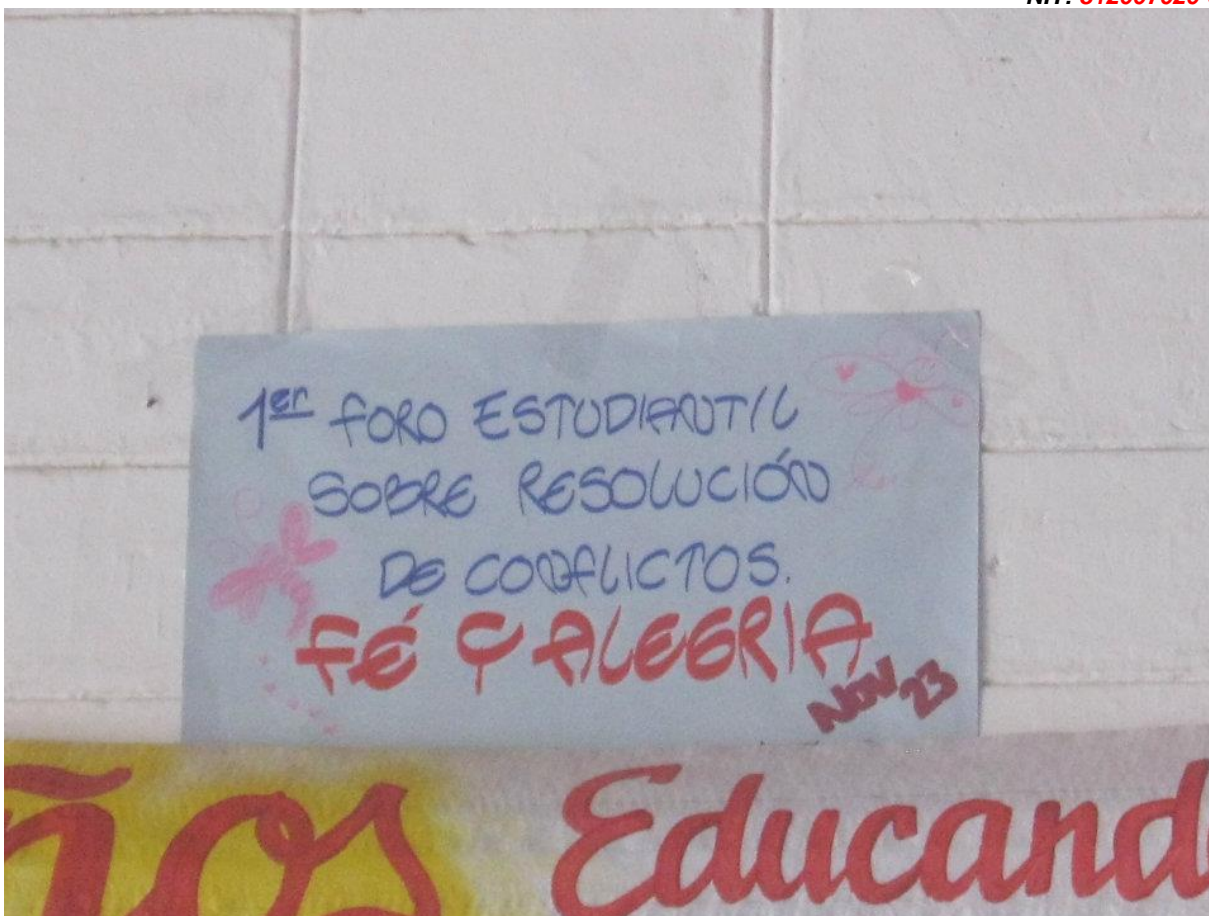 1er FORO ESTUDIANTIL
SOBRE RESOLUCIÓN
DE CONFLICTOS.
FÉ Y ALEGRIA
NOV 23
ños Educand